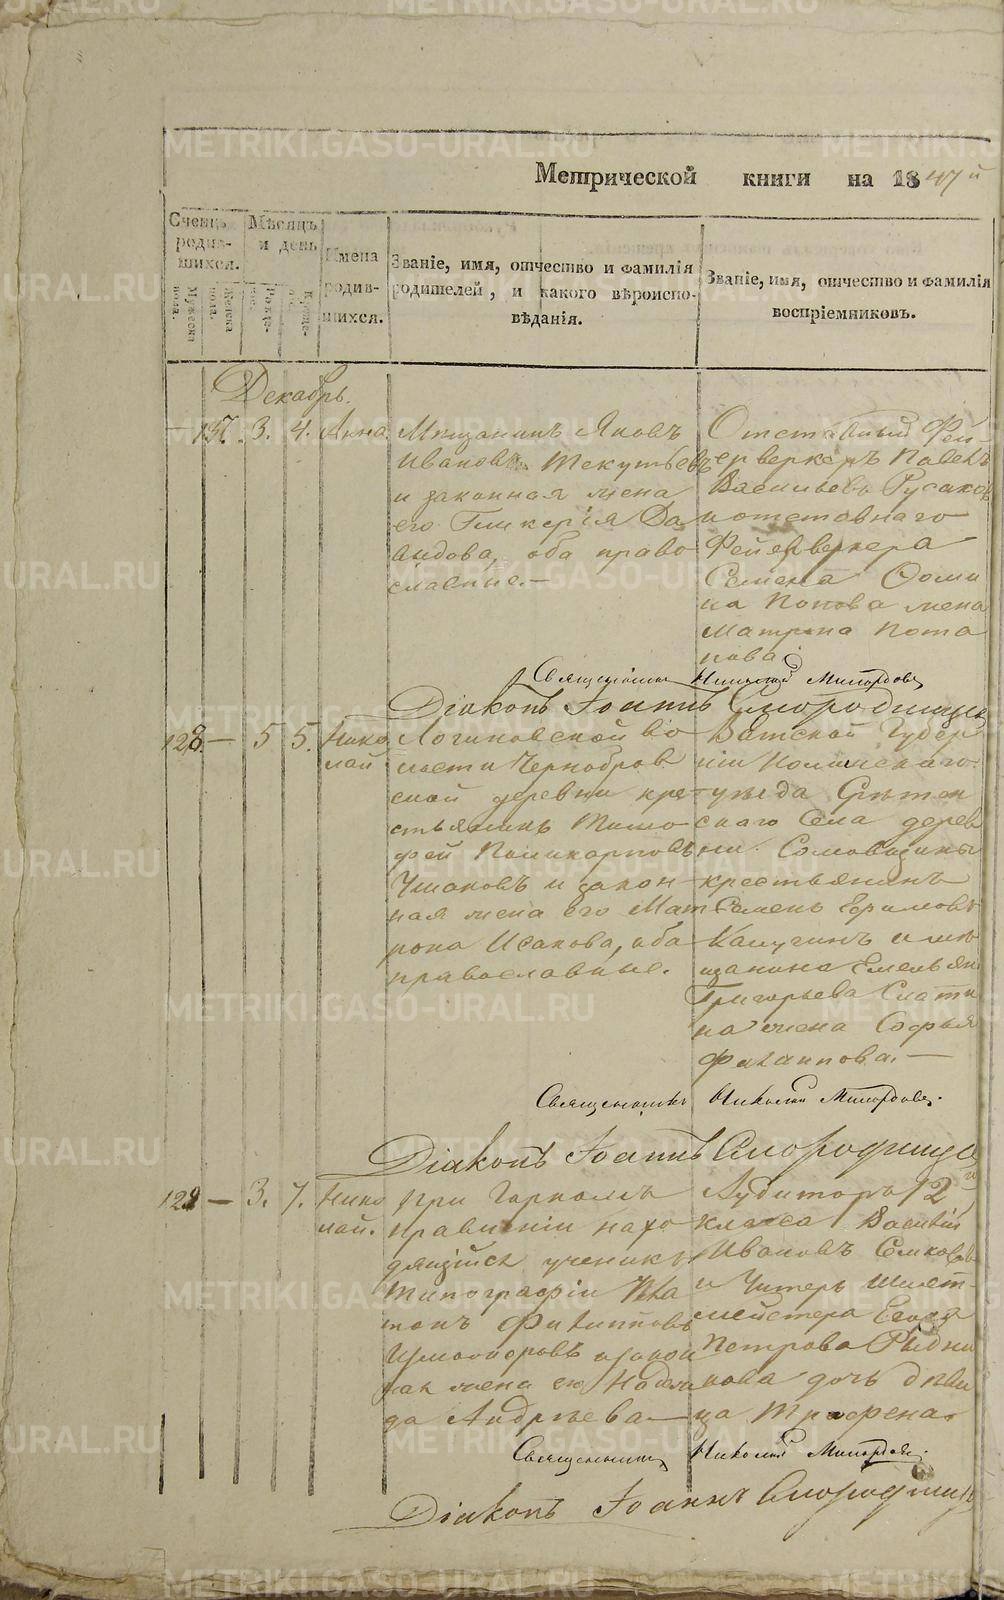 Метрической книги на 1847й
Счетъ родив-шихся.
Мѣсяцъ и день
Имена родив-шихся.
Званіе, имя, отчество и фамилія
родителей, и какого вѣроиспо-
вѣданія.
Званіе, имя, отчество и фамилія
воспріемниковъ.
Мужеска пола.
Женска пола.
Декабрь.
137. 3. 4. Анна
Мѣщанинъ Яковъ
Ивановъ Текутьевъ
и законная жена
его Гликерія Да
видова, оба право
славные.—
Отставный Фей-
ерверкеръ Павелъ
Васильевъ Русаков
и отставнаго
Фейерверкера
Семена Фоми
на Попова жена
Матрона Пота
пова
Священникъ Николай Милордовъ
Діаконъ Іоаннъ Смородинцовъ
128 — 5 5. Нико
лай
Логиновской во
лости Чернобров
ской деревни кре-
стьянинъ Тимо
фей Поликарповъ
Ушаковъ и закон
ная жена его Мат
рона Исакова, оба
православные.
Вятской Губер
ніи Нолинскаго
уѣзда Срѣтен
скаго Села дерев
ни
крестьянинъ
Семенъ Ефимовъ
Калугинъ и мѣ
щанина Емельян
Григорьева Слати
на жена Софья
Филиппова.—
Священникъ Николай Милордовъ.
Діаконъ Іоаннъ Смородинцов
129 — 3. 7. Нико
лай.
При Горномъ
правленіи нахо
дящійся ученикъ
Типографіи Пла
тонъ Филипповъ
и закон
ная жена его Надеж
да Андреева—
Аудиторъ 12й
класса Василій
Ивановъ
и
мейстера Егора
Петрова
дочь дѣви
ца
Священникъ Николай Милордовъ.
Діаконъ Іоаннъ Смородинц
METRIKI.GASO-URAL.RU